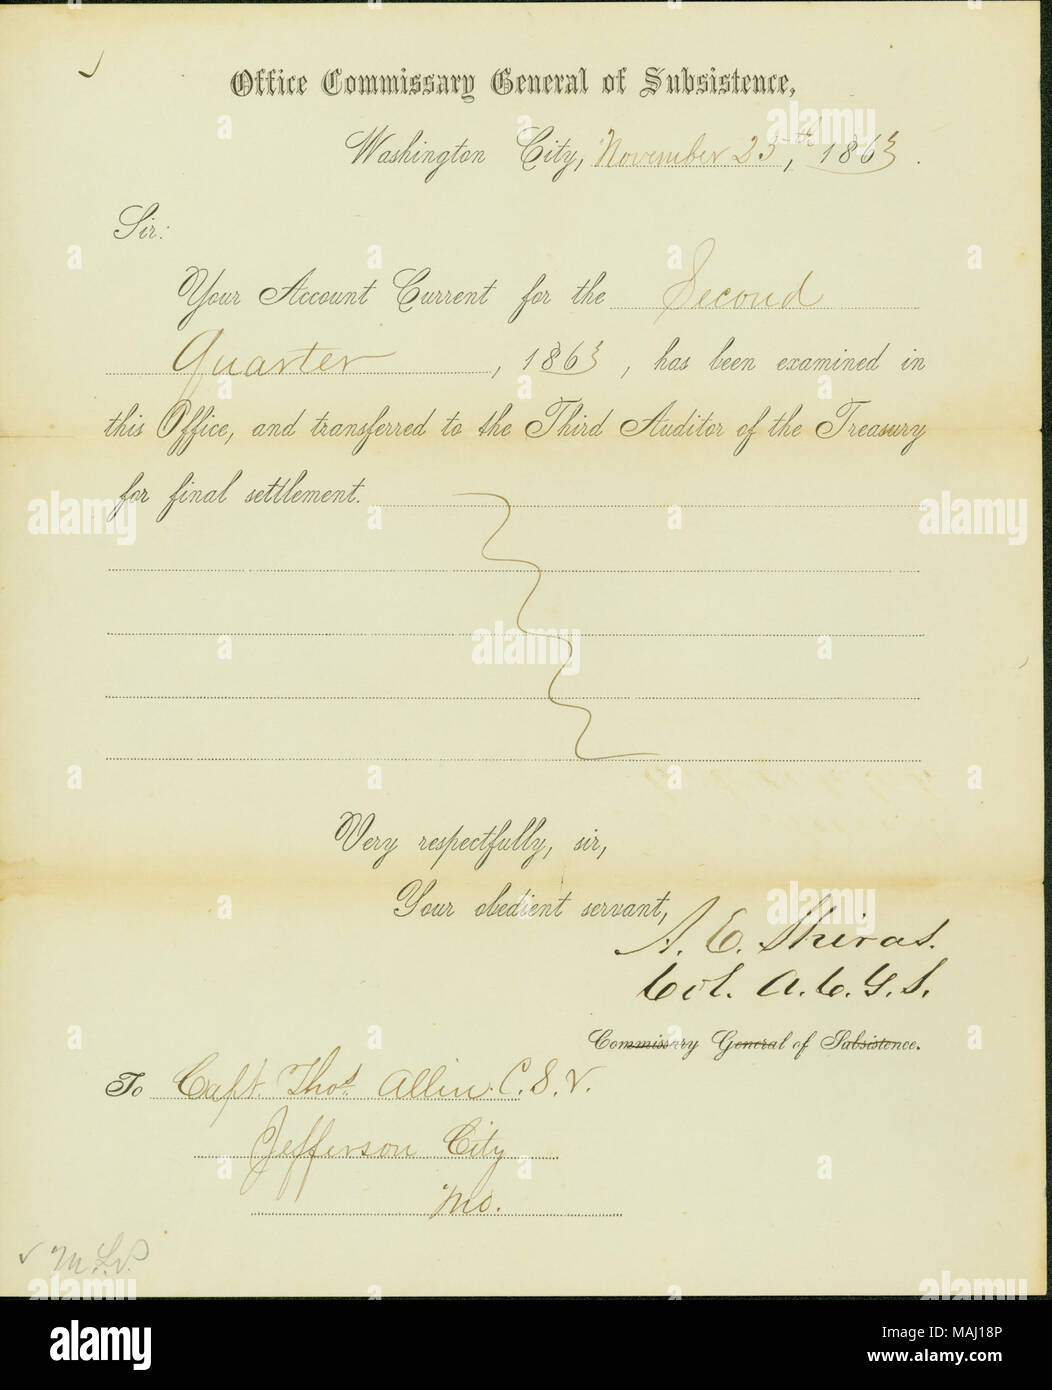 Office Commissary General of Subsistence,
Washington City, November 25th, 1863.
Sir:
Your Account Current for the Second
Quarter, 1863, has been examined in
this Office, and transferred to the Third Auditor of the Treasury
for final settlement.
Very respectfully, sir,
Your obedient servant,
A. E. Shiras.
Col. A. C. G. S.
Commissary General of Subsistence.
To Capt. Thos. Allin C. S. V.
Jefferson City
Mo.
alamy
Image ID: MAJ18P
www.alamy.com